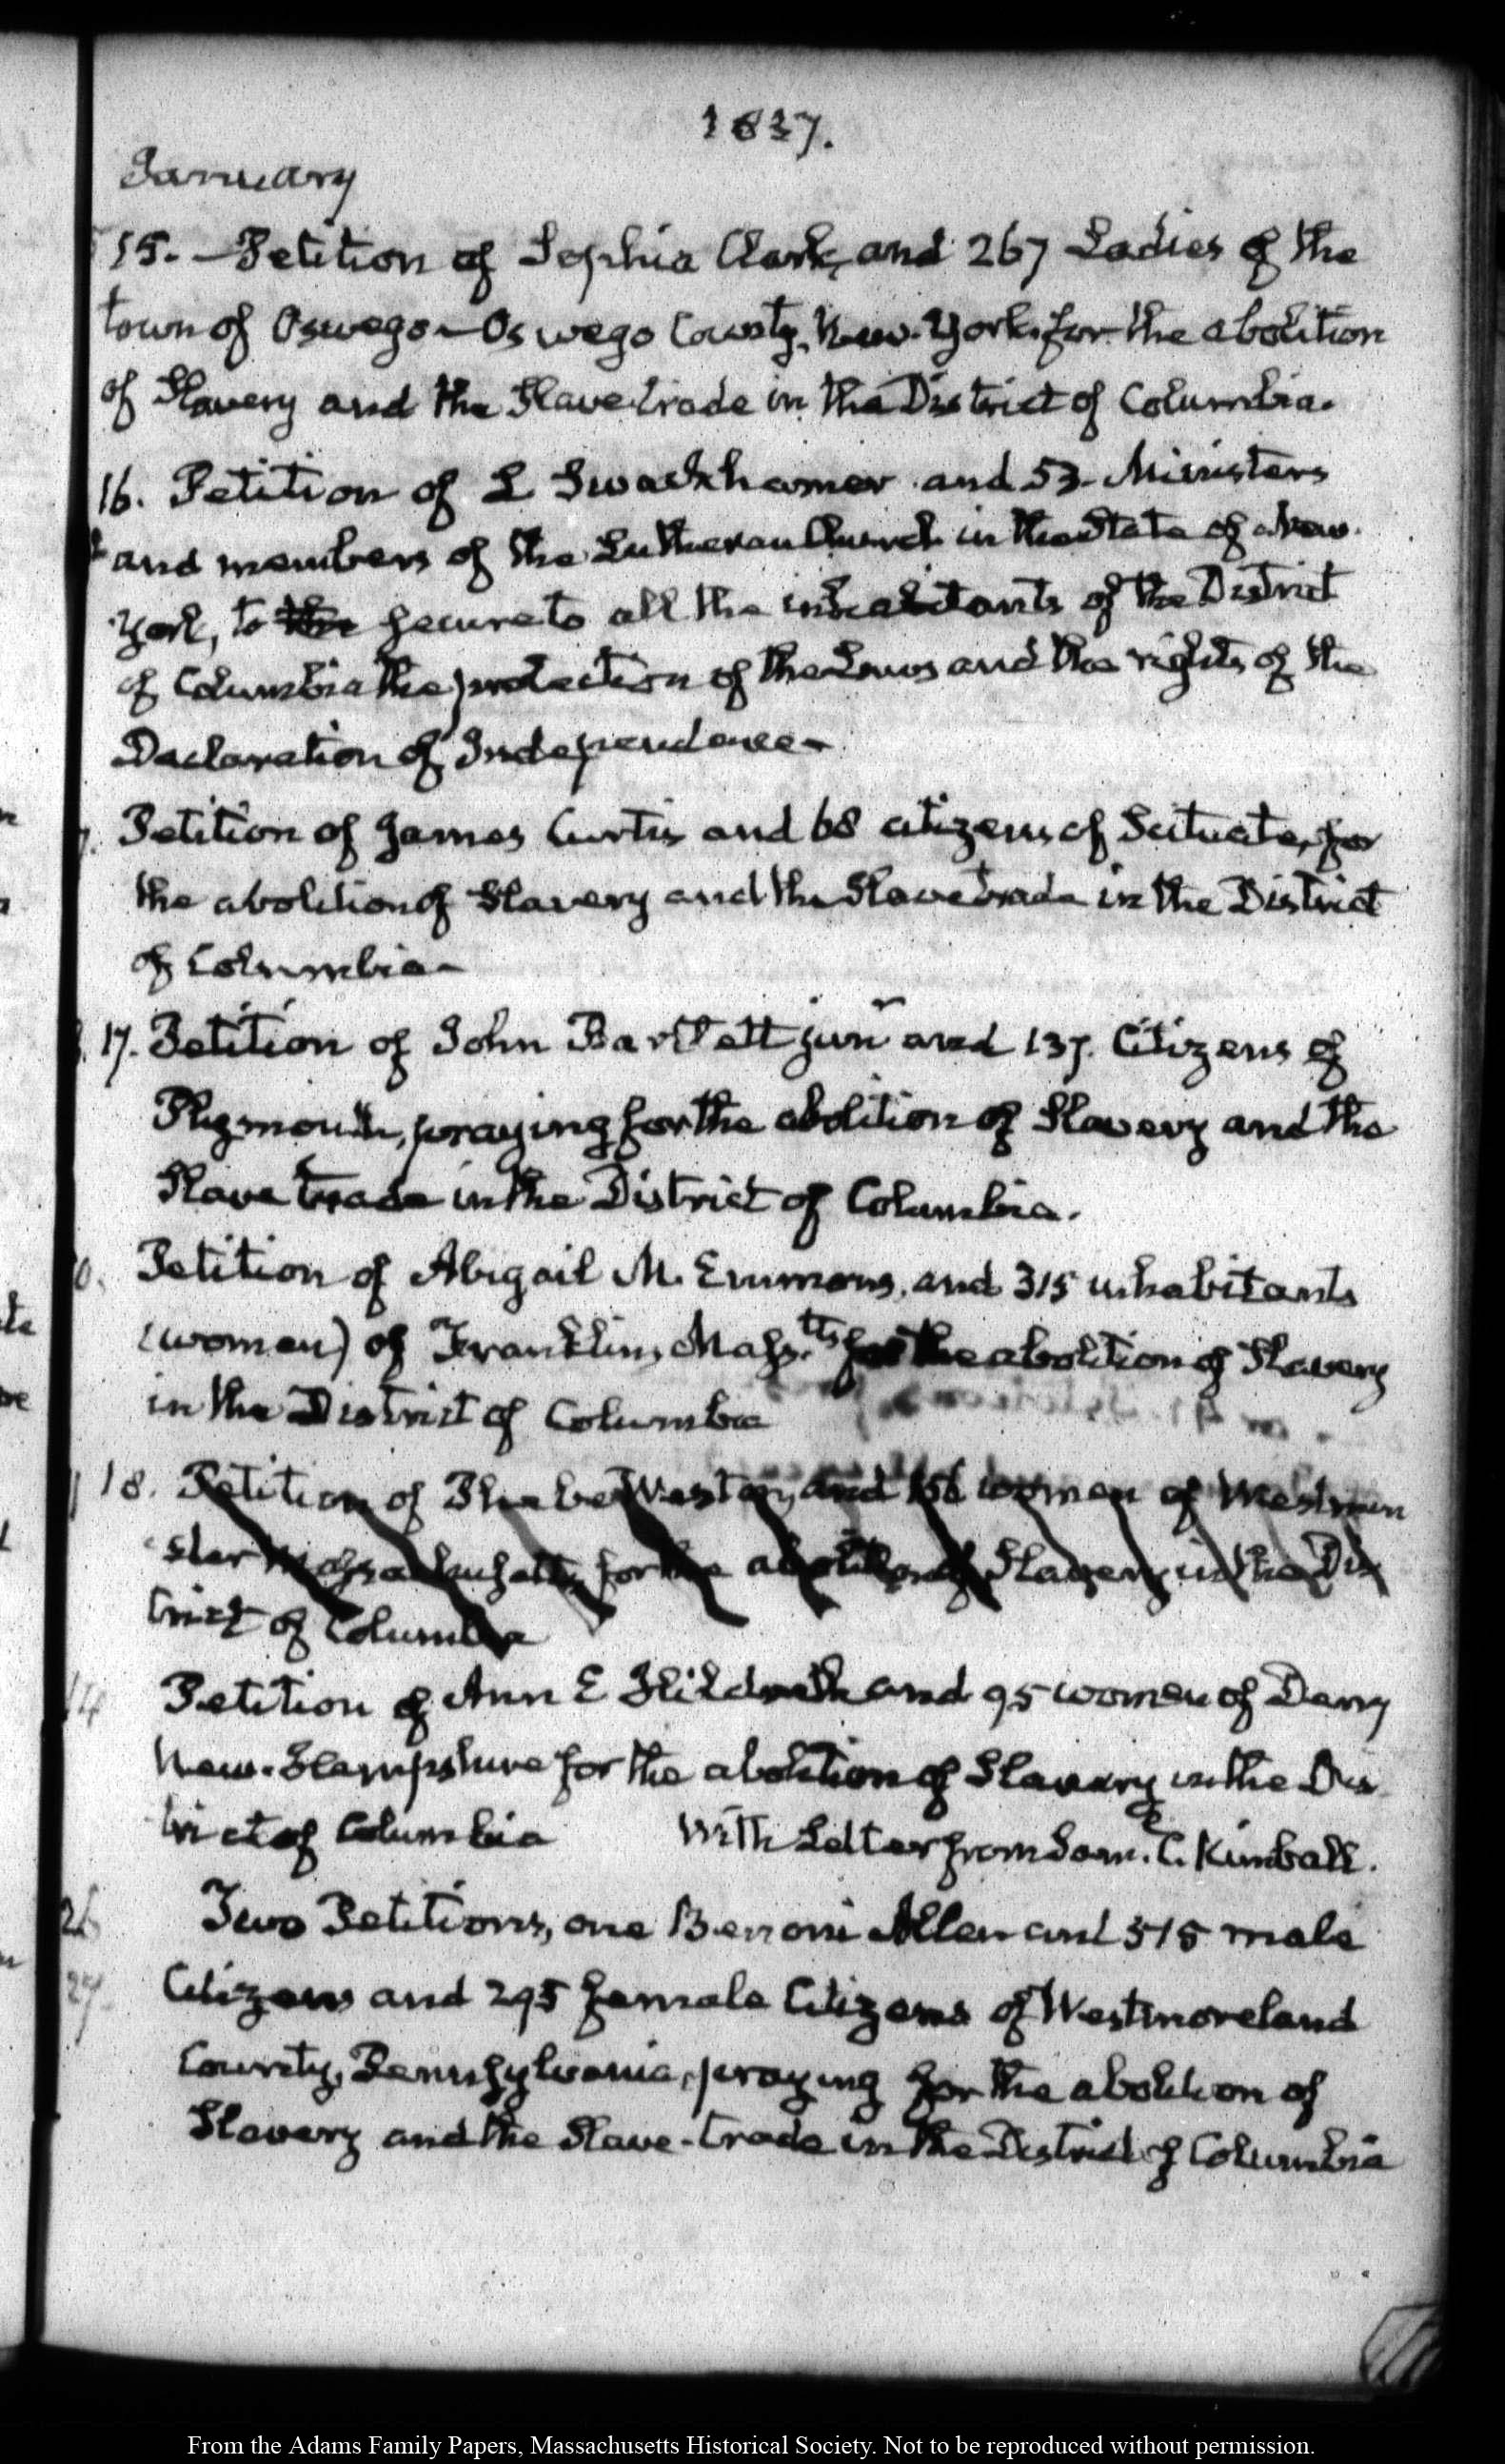 1837.
January
15. — Petition of Sophia Clark, and 267 Ladies of the
town of Oswego — Oswego County, New-York, for the abolition
of Slavery and the Slave trade in the District of Columbia.
16. Petition of L Swackhamer and 53 Ministers
and members of the Lutheran Church in the State of New
York, to the secure to all the inhabitants of the District
of Columbia the protection of the Laws and the rights of the
Declaration of Independence —
Petition of James Curtis and 68 citizens of Scituate, for
the abolition of Slavery and the Slave trade in the District
of Columbia —
17. Petition of John Bartlett junr and 137. Citizens of
Plymouth, praying for the abolition of Slavery and the
Slave trade in the District of Columbia.
Petition of Abigail M. Emmons, and 315 inhabitants
(women) of Franklin, Mass.tts for the abolition of Slavery
in the District of Columbia
18. Petition of Phebe Weston, and 156 women of Westmin
ster Massachusetts, for the abolition of Slavery in the Dis
trict of Columbia
14 Petition of Ann E Hildreth and 95 women of Derry
New-Hampshire for the abolition of Slavery in the Dis
trict of Columbia With Letter from C. Kimball.
26 Two Petitions, one Benoni Allen and 515 male
27. Citizens and 295 female Citizens of Westmoreland
County, Pennsylvania, praying for the abolition of
Slavery and the Slave-trade in the District of Columbia
From the Adams Family Papers, Massachusetts Historical Society. Not to be reproduced without permission.